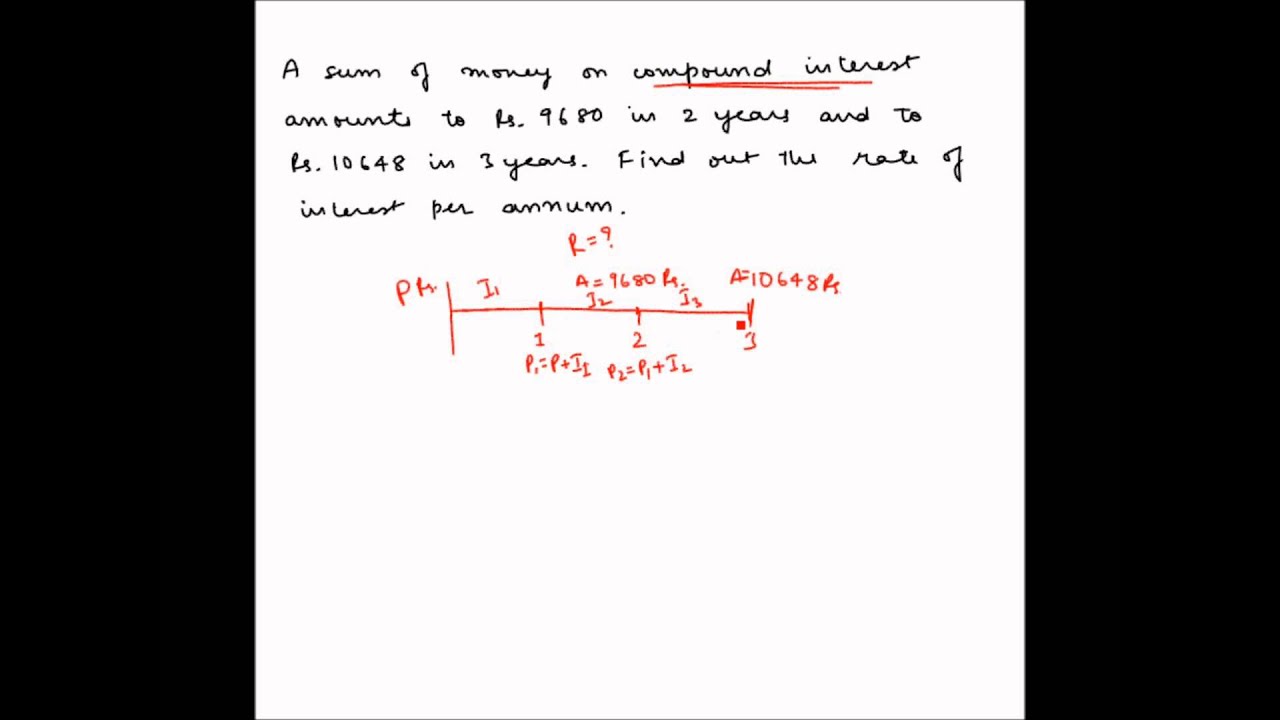 A sum of money on compound interest
amounts to Rs. 9680 in 2 years and to
Rs. 10648 in 3 years. Find out the rate of
interest per annum.
R = ?
P Rs. I₁ A = 9680 Rs. I₂ I₃ A=10648 Rs
1 2 3
P₁=P+I₁ P₂=P₁+I₂